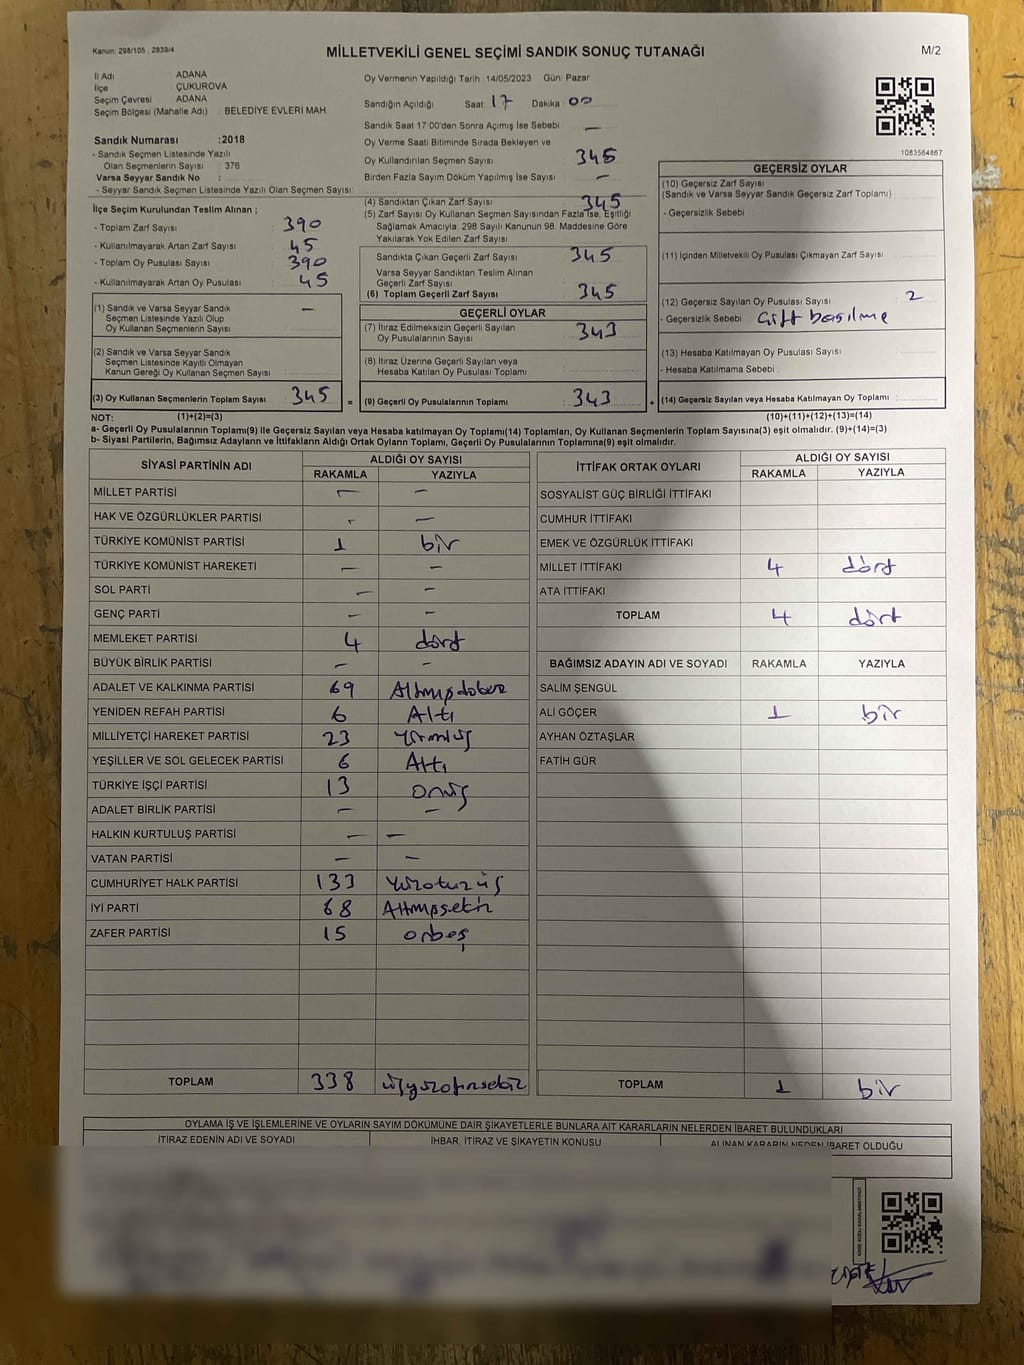 Kanun: 298/105 , 2839/4
MİLLETVEKİLİ GENEL SEÇİMİ SANDIK SONUÇ TUTANAĞI
M/2
İl Adı : ADANA
İlçe : ÇUKUROVA
Seçim Çevresi : ADANA
Seçim Bölgesi (Mahalle Adı) : BELEDİYE EVLERİ MAH
Sandık Numarası :2018
- Sandık Seçmen Listesinde Yazılı
Olan Seçmenlerin Sayısı : 376
Varsa Seyyar Sandık No :
- Seyyar Sandık Seçmen Listesinde Yazılı Olan Seçmen Sayısı:
Oy Vermenin Yapıldığı Tarih :14/05/2023 Gün: Pazar
Sandığın Açıldığı Saat: 17 Dakika : 00
Sandık Saat 17:00'den Sonra Açımış İse Sebebi : —
Oy Verme Saati Bitiminde Sırada Bekleyen ve
Oy Kullandırılan Seçmen Sayısı : 345
Birden Fazla Sayım Döküm Yapılmış İse Sayısı : —
1083564867
İlçe Seçim Kurulundan Teslim Alınan ;
- Toplam Zarf Sayısı : 390
- Kullanılmayarak Artan Zarf Sayısı : 45
- Toplam Oy Pusulası Sayısı : 390
- Kullanılmayarak Artan Oy Pusulası : 45
(1) Sandık ve Varsa Seyyar Sandık
Seçmen Listesinde Yazılı Olup
Oy Kullanan Seçmenlerin Sayısı : —
(2) Sandık ve Varsa Seyyar Sandık
Seçmen Listesinde Kayıtlı Olmayan
Kanun Gereği Oy Kullanan Seçmen Sayısı :
(3) Oy Kullanan Seçmenlerin Toplam Sayısı : 345 =
(4) Sandıktan Çıkan Zarf Sayısı : 345
(5) Zarf Sayısı Oy Kullanan Seçmen Sayısından Fazla İse, Eşitliği
Sağlamak Amacıyla; 298 Sayılı Kanunun 98. Maddesine Göre
Yakılarak Yok Edilen Zarf Sayısı :
Sandıkta Çıkan Geçerli Zarf Sayısı : 345
Varsa Seyyar Sandıktan Teslim Alınan
Geçerli Zarf Sayısı :
(6) Toplam Geçerli Zarf Sayısı : 345
GEÇERLİ OYLAR
(7) İtiraz Edilmeksizin Geçerli Sayılan
Oy Pusulalarının Sayısı : 343
(8) İtiraz Üzerine Geçerli Sayılan veya
Hesaba Katılan Oy Pusulası Toplamı :
(9) Geçerli Oy Pusulalarının Toplamı : 343 +
GEÇERSİZ OYLAR
(10) Geçersiz Zarf Sayısı
(Sandık ve Varsa Seyyar Sandık Geçersiz Zarf Toplamı) :
- Geçersizlik Sebebi :
(11) İçinden Milletvekili Oy Pusulası Çıkmayan Zarf Sayısı :
(12) Geçersiz Sayılan Oy Pusulası Sayısı : 2
- Geçersizlik Sebebi : Çift basılma
(13) Hesaba Katılmayan Oy Pusulası Sayısı :
- Hesaba Katılmama Sebebi :
(14) Geçersiz Sayılan veya Hesaba Katılmayan Oy Toplamı :
NOT: (1)+(2)=(3) (10)+(11)+(12)+(13)=(14)
a- Geçerli Oy Pusulalarının Toplamı(9) ile Geçersiz Sayılan veya Hesaba Katılmayan Oy Toplamı(14) Toplamları, Oy Kullanan Seçmenlerin Toplam Sayısına(3) eşit olmalıdır. (9)+(14)=(3)
b- Siyasi Partilerin, Bağımsız Adayların ve İttifakların Aldığı Ortak Oyların Toplamı, Geçerli Oy Pusulalarının Toplamına(9) eşit olmalıdır.
SİYASİ PARTİNİN ADI ALDIĞI OY SAYISI
RAKAMLA YAZIYLA
MİLLET PARTİSİ — —
HAK VE ÖZGÜRLÜKLER PARTİSİ - —
TÜRKİYE KOMÜNİST PARTİSİ 1 bir
TÜRKİYE KOMÜNİST HAREKETİ — —
SOL PARTİ — —
GENÇ PARTİ — —
MEMLEKET PARTİSİ 4 dört
BÜYÜK BİRLİK PARTİSİ — —
ADALET VE KALKINMA PARTİSİ 69 Altmışdokuz
YENİDEN REFAH PARTİSİ 6 Altı
MİLLİYETÇİ HAREKET PARTİSİ 23 Yirmiüç
YEŞİLLER VE SOL GELECEK PARTİSİ 6 Altı
TÜRKİYE İŞÇİ PARTİSİ 13 onüç
ADALET BİRLİK PARTİSİ — —
HALKIN KURTULUŞ PARTİSİ — —
VATAN PARTİSİ — —
CUMHURİYET HALK PARTİSİ 133 Yüzotuzüç
İYİ PARTİ 68 Altmışsekiz
ZAFER PARTİSİ 15 onbeş
TOPLAM 338
İTTİFAK ORTAK OYLARI ALDIĞI OY SAYISI
RAKAMLA YAZIYLA
SOSYALİST GÜÇ BİRLİĞİ İTTİFAKI
CUMHUR İTTİFAKI
EMEK VE ÖZGÜRLÜK İTTİFAKI
MİLLET İTTİFAKI 4 dört
ATA İTTİFAKI
TOPLAM 4 dört
BAĞIMSIZ ADAYIN ADI VE SOYADI RAKAMLA YAZIYLA
SALİM ŞENGÜL
ALİ GÖÇER 1 bir
AYHAN ÖZTAŞLAR
FATİH GÜR
TOPLAM 1 bir
OYLAMA İŞ VE İŞLEMLERİNE VE OYLARIN SAYIM DÖKÜMÜNE DAİR ŞİKAYETLERLE BUNLARA AİT KARARLARIN NELERDEN İBARET BULUNDUKLARI
İTİRAZ EDENİN ADI VE SOYADI İHBAR, İTİRAZ VE ŞİKAYETİN KONUSU ALINAN KARARIN NEDEN İBARET OLDUĞU